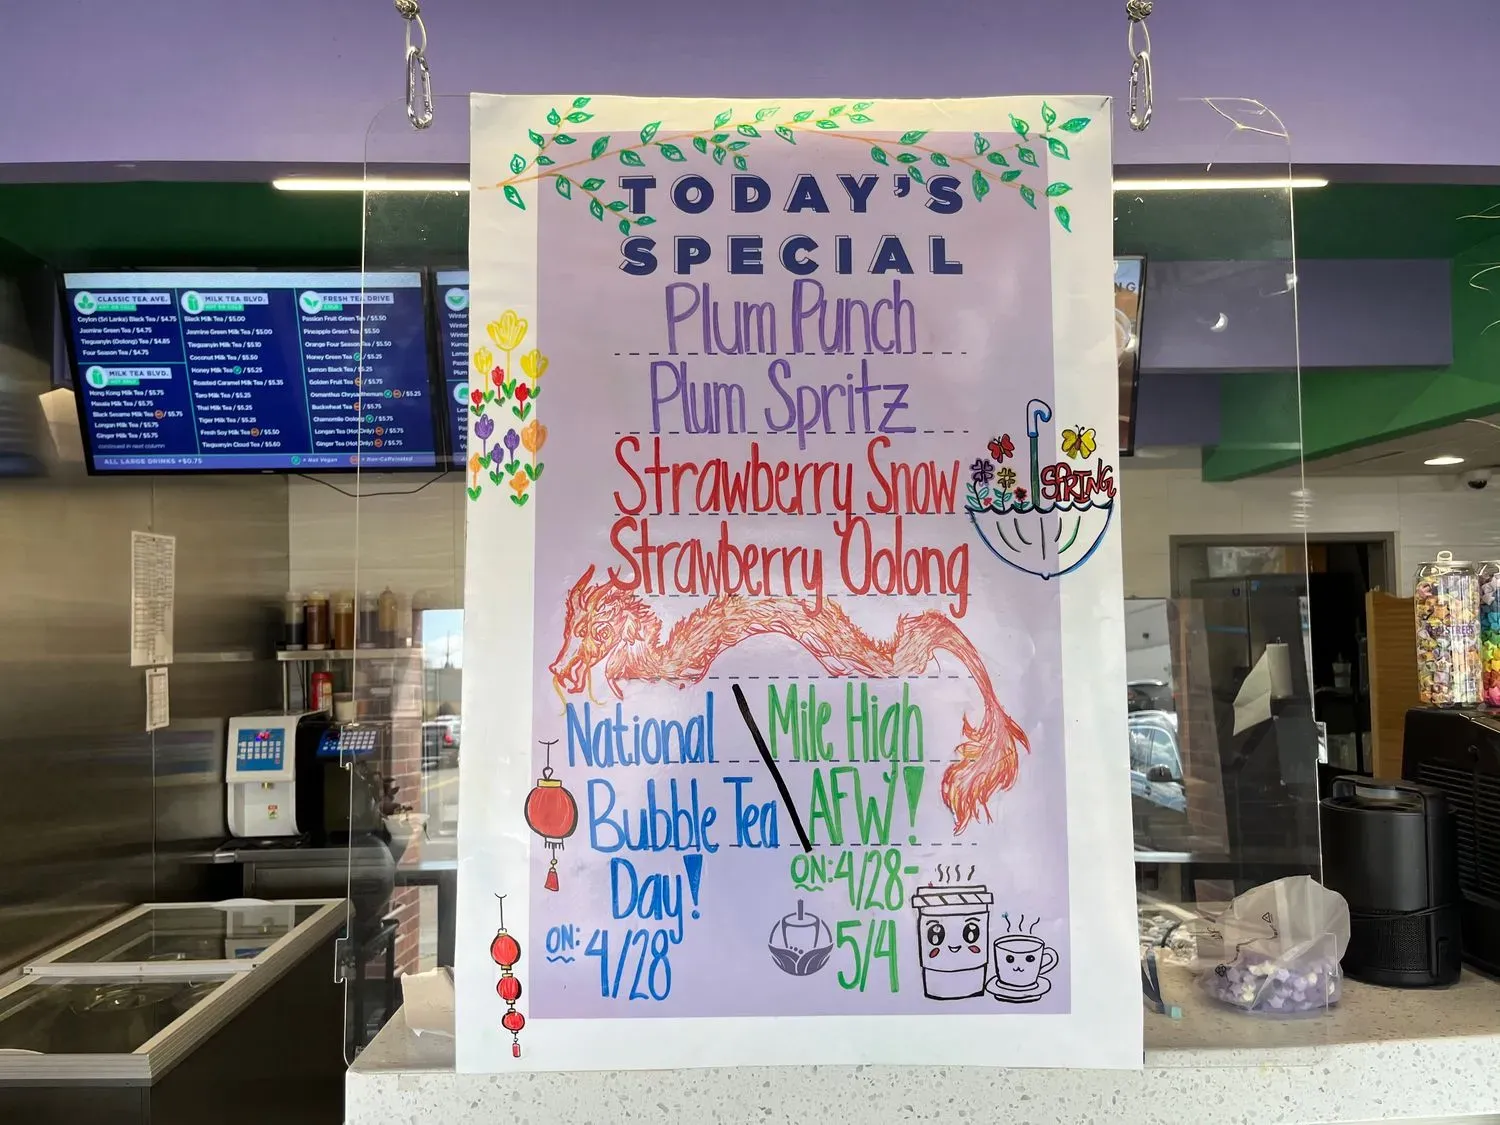 TODAY'S
SPECIAL
Plum Punch
Plum Spritz
Strawberry Snow
Strawberry Oolong
SPRING
National
Bubble Tea
Day!
ON: 4/28
Mile High
AFW!
ON: 4/28-
5/4
CLASSIC TEA AVE.
HOT OR COLD
Ceylon (Sri Lanka) Black Tea / $4.75
Jasmine Green Tea / $4.75
Tieguanyin (Oolong) Tea / $4.85
Four Season Tea / $4.75
MILK TEA BLVD.
HOT ONLY
Hong Kong Milk Tea / $5.75
Masala Milk Tea / $5.75
Black Sesame Milk Tea / $5.75
Longan Milk Tea / $5.75
Ginger Milk Tea / $5.75
continued in next column
MILK TEA BLVD.
HOT OR COLD
Black Milk Tea / $5.00
Jasmine Green Milk Tea / $5.00
Tieguanyin Milk Tea / $5.10
Coconut Milk Tea / $5.50
Honey Milk Tea / $5.25
Roasted Caramel Milk Tea / $5.35
Taro Milk Tea / $5.25
Thai Milk Tea / $5.25
Tiger Milk Tea / $5.25
Fresh Soy Milk Tea / $5.50
Tieguanyin Cloud Tea / $5.60
FRESH TEA DRIVE
COLD
Passion Fruit Green Tea / $5.50
Pineapple Green Tea / $5.50
Orange Four Season Tea / $5.50
Honey Green Tea / $5.25
Lemon Black Tea / $5.25
Golden Fruit Tea / $5.75
Osmanthus Chrysanthemum / $5.25
Buckwheat Tea / $5.75
Chamomile Oolong / $5.75
Longan Tea (Hot Only) / $5.75
Ginger Tea (Hot Only) / $5.75
ALL LARGE DRINKS +$0.75
= Not Vegan
= Non-Caffeinated